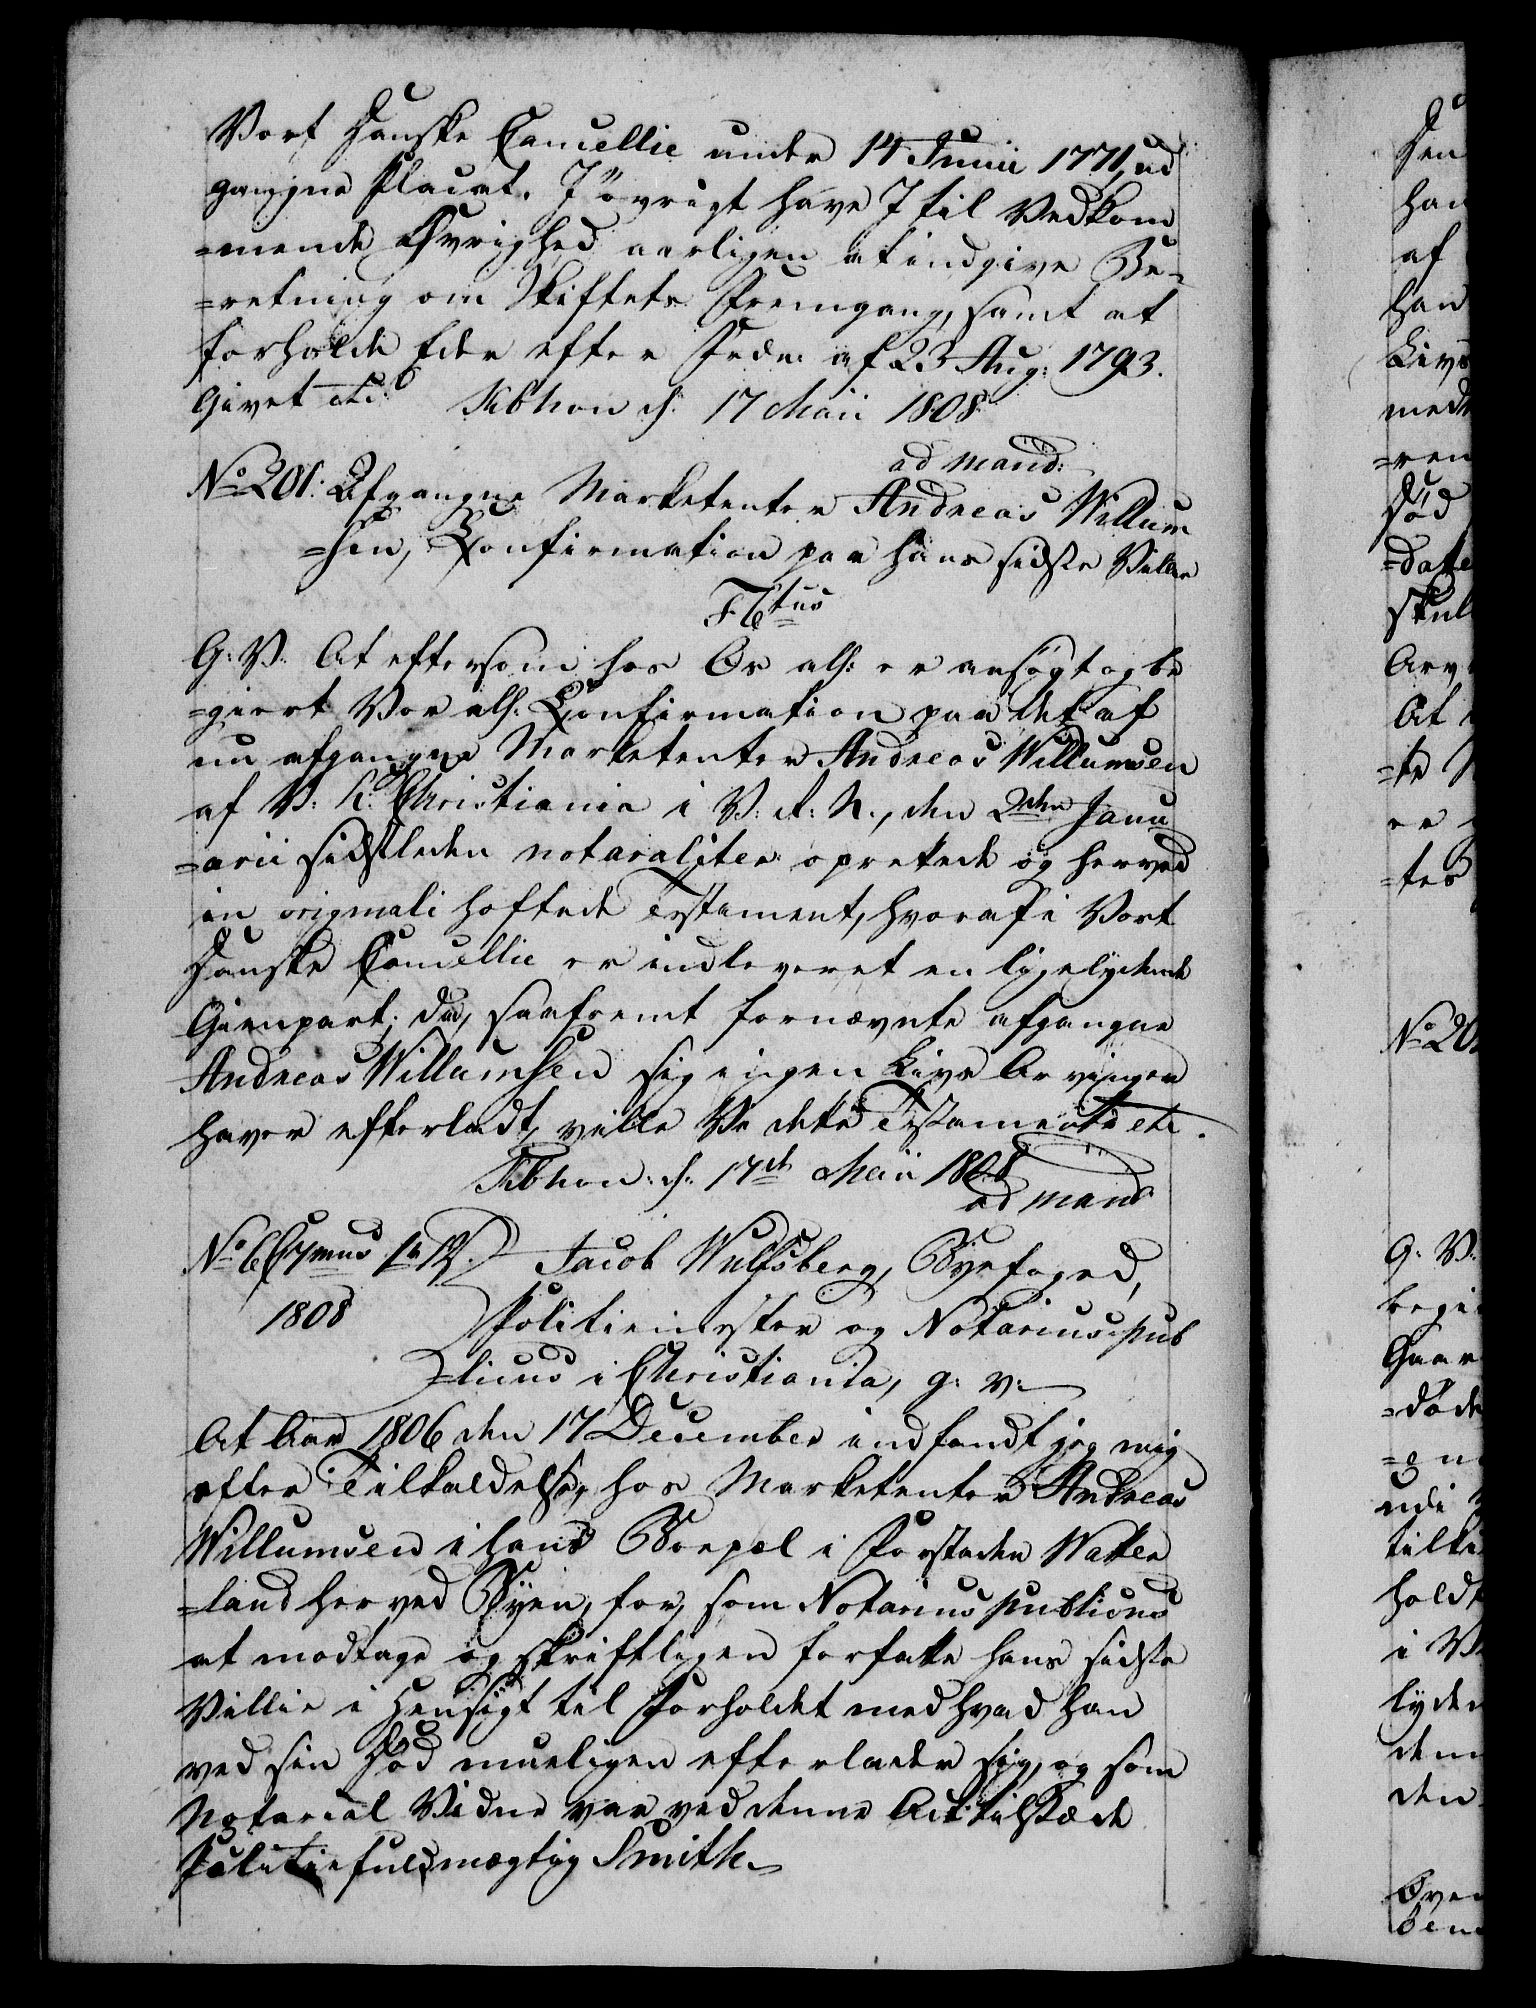 Vort Danske Cancellie under 14 Junii 1771, ud
gangne Placat. I øvrigt have I til Vedkom
=mende Øvrighed aarligen at indgive Be-
=retning om Skiftets Fremgang, samt at
forholde Eder efter Frdn: af 23 Aug: 1793.
Givet etc. Kbhvn d. 17 Maii 1808
ad mand:
No 201. Afgangne Marketenter Andreas Willum
=sen, Confirmation paa hans sidste Villie
F6tus
G: V. At eftersom hos Os alh: er ansøgt og be
=giert Vor alh. Confirmation paa det af
nu afgangne Marketenter Andreas Willumsen
af V: K: Christiania i V: R: N., den 2den Janu
=arii sidstleden notaraliter oprettede og herved
in originali heftede Testament, hvoraf i Vort
Danske Cancellie er indleveret en ligelydende
Gienpart; da, saafremt fornævnte afgangne
Andreas Willumsen sig ingen Livs Arvinger
haver efterladt, ville Vi dette Testamente etc.
Kbhvn: d. 17d Maii 1808
ad mand
No 6 1 Rd. Jacob Wulfsberg, Byefoged,
1808 Politiemester og Notarius pub
=licus i Christiania, g: v:
At Aar 1806 den 17 December indfandt jeg mig
efter Tilkaldelse, hos Marketenter Andreas
Willumsen i hans Boepæl i Forstaden Vatter
=land her ved Byen, for, som Notarius publicus
at modtage og skriftligen forfatte hans sidste
Villie i Hensigt til Forholdet med hvad han
ved sin Død mueligen efterlader sig, og som
Notarial Vidne var ved denne Act tilstæde
Politiefuldmægtig Smith.